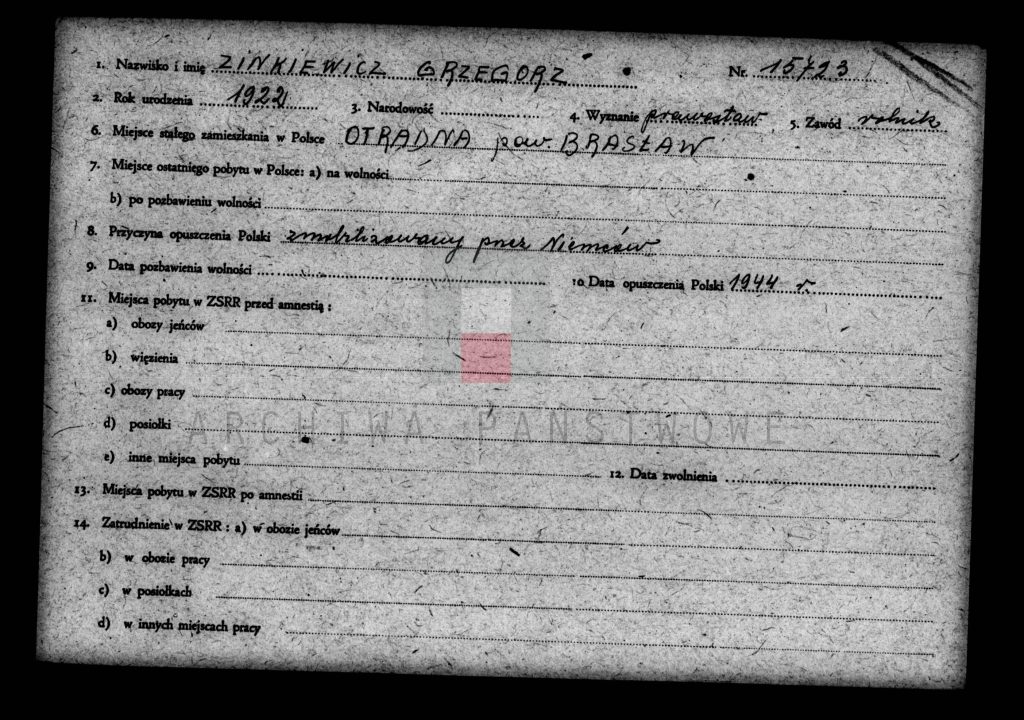 1. Nazwisko i imię ZINKIEWICZ GRZEGORZ Nr. 15723
2. Rok urodzenia 1922 3. Narodowość 4. Wyznanie prawosław 5. Zawód rolnik
6. Miejsce stałego zamieszkania w Polsce OTRADNA pow. BRASŁAW
7. Miejsce ostatniego pobytu w Polsce: a) na wolności
b) po pozbawieniu wolności
8. Przyczyna opuszczenia Polski zmobilizowany przez Niemców
9. Data pozbawienia wolności 10 Data opuszczenia Polski 1944 r.
11. Miejsca pobytu w ZSRR przed amnestią :
a) obozy jeńców
b) więzienia
c) obozy pracy
ARCHIWA PAŃSTWOWE
d) posiołki
e) inne miejsca pobytu 12. Data zwolnienia
13. Miejsca pobytu w ZSRR po amnestii
14. Zatrudnienie w ZSRR : a) w obozie jeńców
b) w obozie pracy
c) w posiołkach
d) w innych miejscach pracy